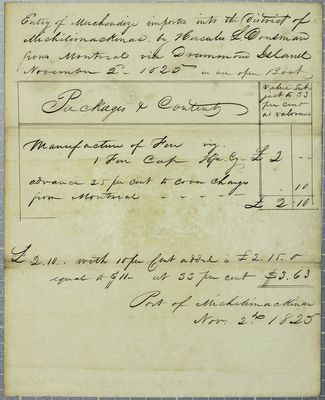 Entry of Merchandize imported into the District of
Michilimackinac by Hercules L Dousman
from Montreal via Drummond Island
November 2d 1825 in an open Boat
Packages & Contents
Value Sub
ject to 33
per cent
ad valorem
Manufacture of Fur viz
1 Fur Cap £ 2 " -
advance 25 per cent to cover charges
from Montreal - - - - - 10
£ 2 . 10 -
£ 2.10.. with 10 per Cent added is £ 2. 15. 0
equal to $11- at 33 per cent $3.63
Port of Michilimackinac
Nov. 2nd 1825